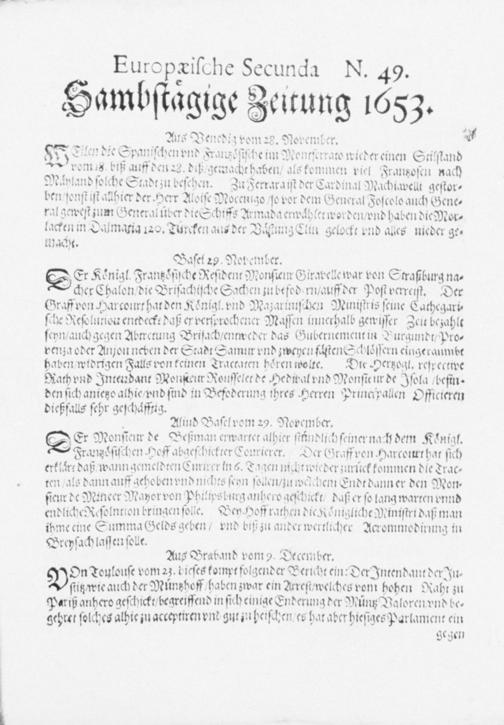 Europæische Secunda N. 49.
Sambstägige Zeitung 1653.
Aus Venedig vom 28. November.
WEilen die Spanischen vnd Frantzösische im Montferrato wieder einen Stilstand
vom 18. biß auff den 28. diß gemachet haben / als kommen viel Frantzosen nach
Mäyland solche Stadt zu besehen. Zu Ferrara ist der Cardinal Machiavell gestor-
ben / sonst ist allhier der Herr Aloise Mocenigo / so vor dem General Foscolo auch Gene-
ral gewest zum General über die Schiffs Armada erwählet worden / vnd haben die Mor-
lacken in Dalmatia 120. Türcken aus der Västung Clin gelockt vnd alles nieder ge-
macht.
Basel 29. November.
DEr Königl. Frantzösische Resident Monsieur Giravelle war von Straßburg na-
cher Chalon / die Brisachische Sachen zu befodern / auff der Post verreist. Der
Graff von Harcourt hat den Königl. vnd Mazarinischen Ministris seine Cathegari-
sche Resolution entdeckt daß er versprochener Massen innerhalb gewisser Zeit bezahlt
seyn / auch gegen Abtretung Brisach / entweder das Gubernement in Burgund / Pro-
venza oder Anzou neben der Stadt Samur vnd zweyen fästen Schlössern eingeraumbt
haben / widrigen Falls von keinen Tractaten hören wolte. Die Hertzogl. respective
Rath vnd Intendant Monsieur Rousselet de Hedival vnd Monsieur de Isola / befin-
den sich anietzo alhie / vnd sind in Befoderung ihres Herren Principallen Officieren
dießfalls sehr geschäfftig.
Aliud Basel vom 29. November.
DEr Monsieur de Beßman erwartet alhier stündlich seiner nach dem Königl.
Frantzösischen Hoff abgeschickter Courierer. Der Graff von Harcourt hat sich
erklärt daß wann gemeldten Curirer in 6. Tagen nicht wieder zurück kommen die Trac-
ten / als dann auff gehoben vnd nichts seyn sollen / zu welchem Endt dann er den Mon-
sieur de Minceer Mayor von Philipsburg anhero geschickt / daß er so lang warten vnnd
endliche Resolution bringen solle. Bey Hoff rathen die Königliche Ministri daß man
ihme eine Summa Gelds geben / vnd biß zu anderwertlicher Accommodirung in
Breysach lassen solle.
Aus Braband vom 9. December.
VOn Toulouse vom 23. dieses kompt folgender Bericht ein: Der Intendant der Ju-
stitz wie auch der Müntzhoff / haben zwar ein Arrest / welches vom hohen Raht zu
Pariß anhero geschickt / begreiffend in sich einige Enderung der Müntz Valoren vnd be-
gehret solches alhie zu acceptiren vnd gut zu heischen / es hat aber hiesiges Parlament ein
gegen